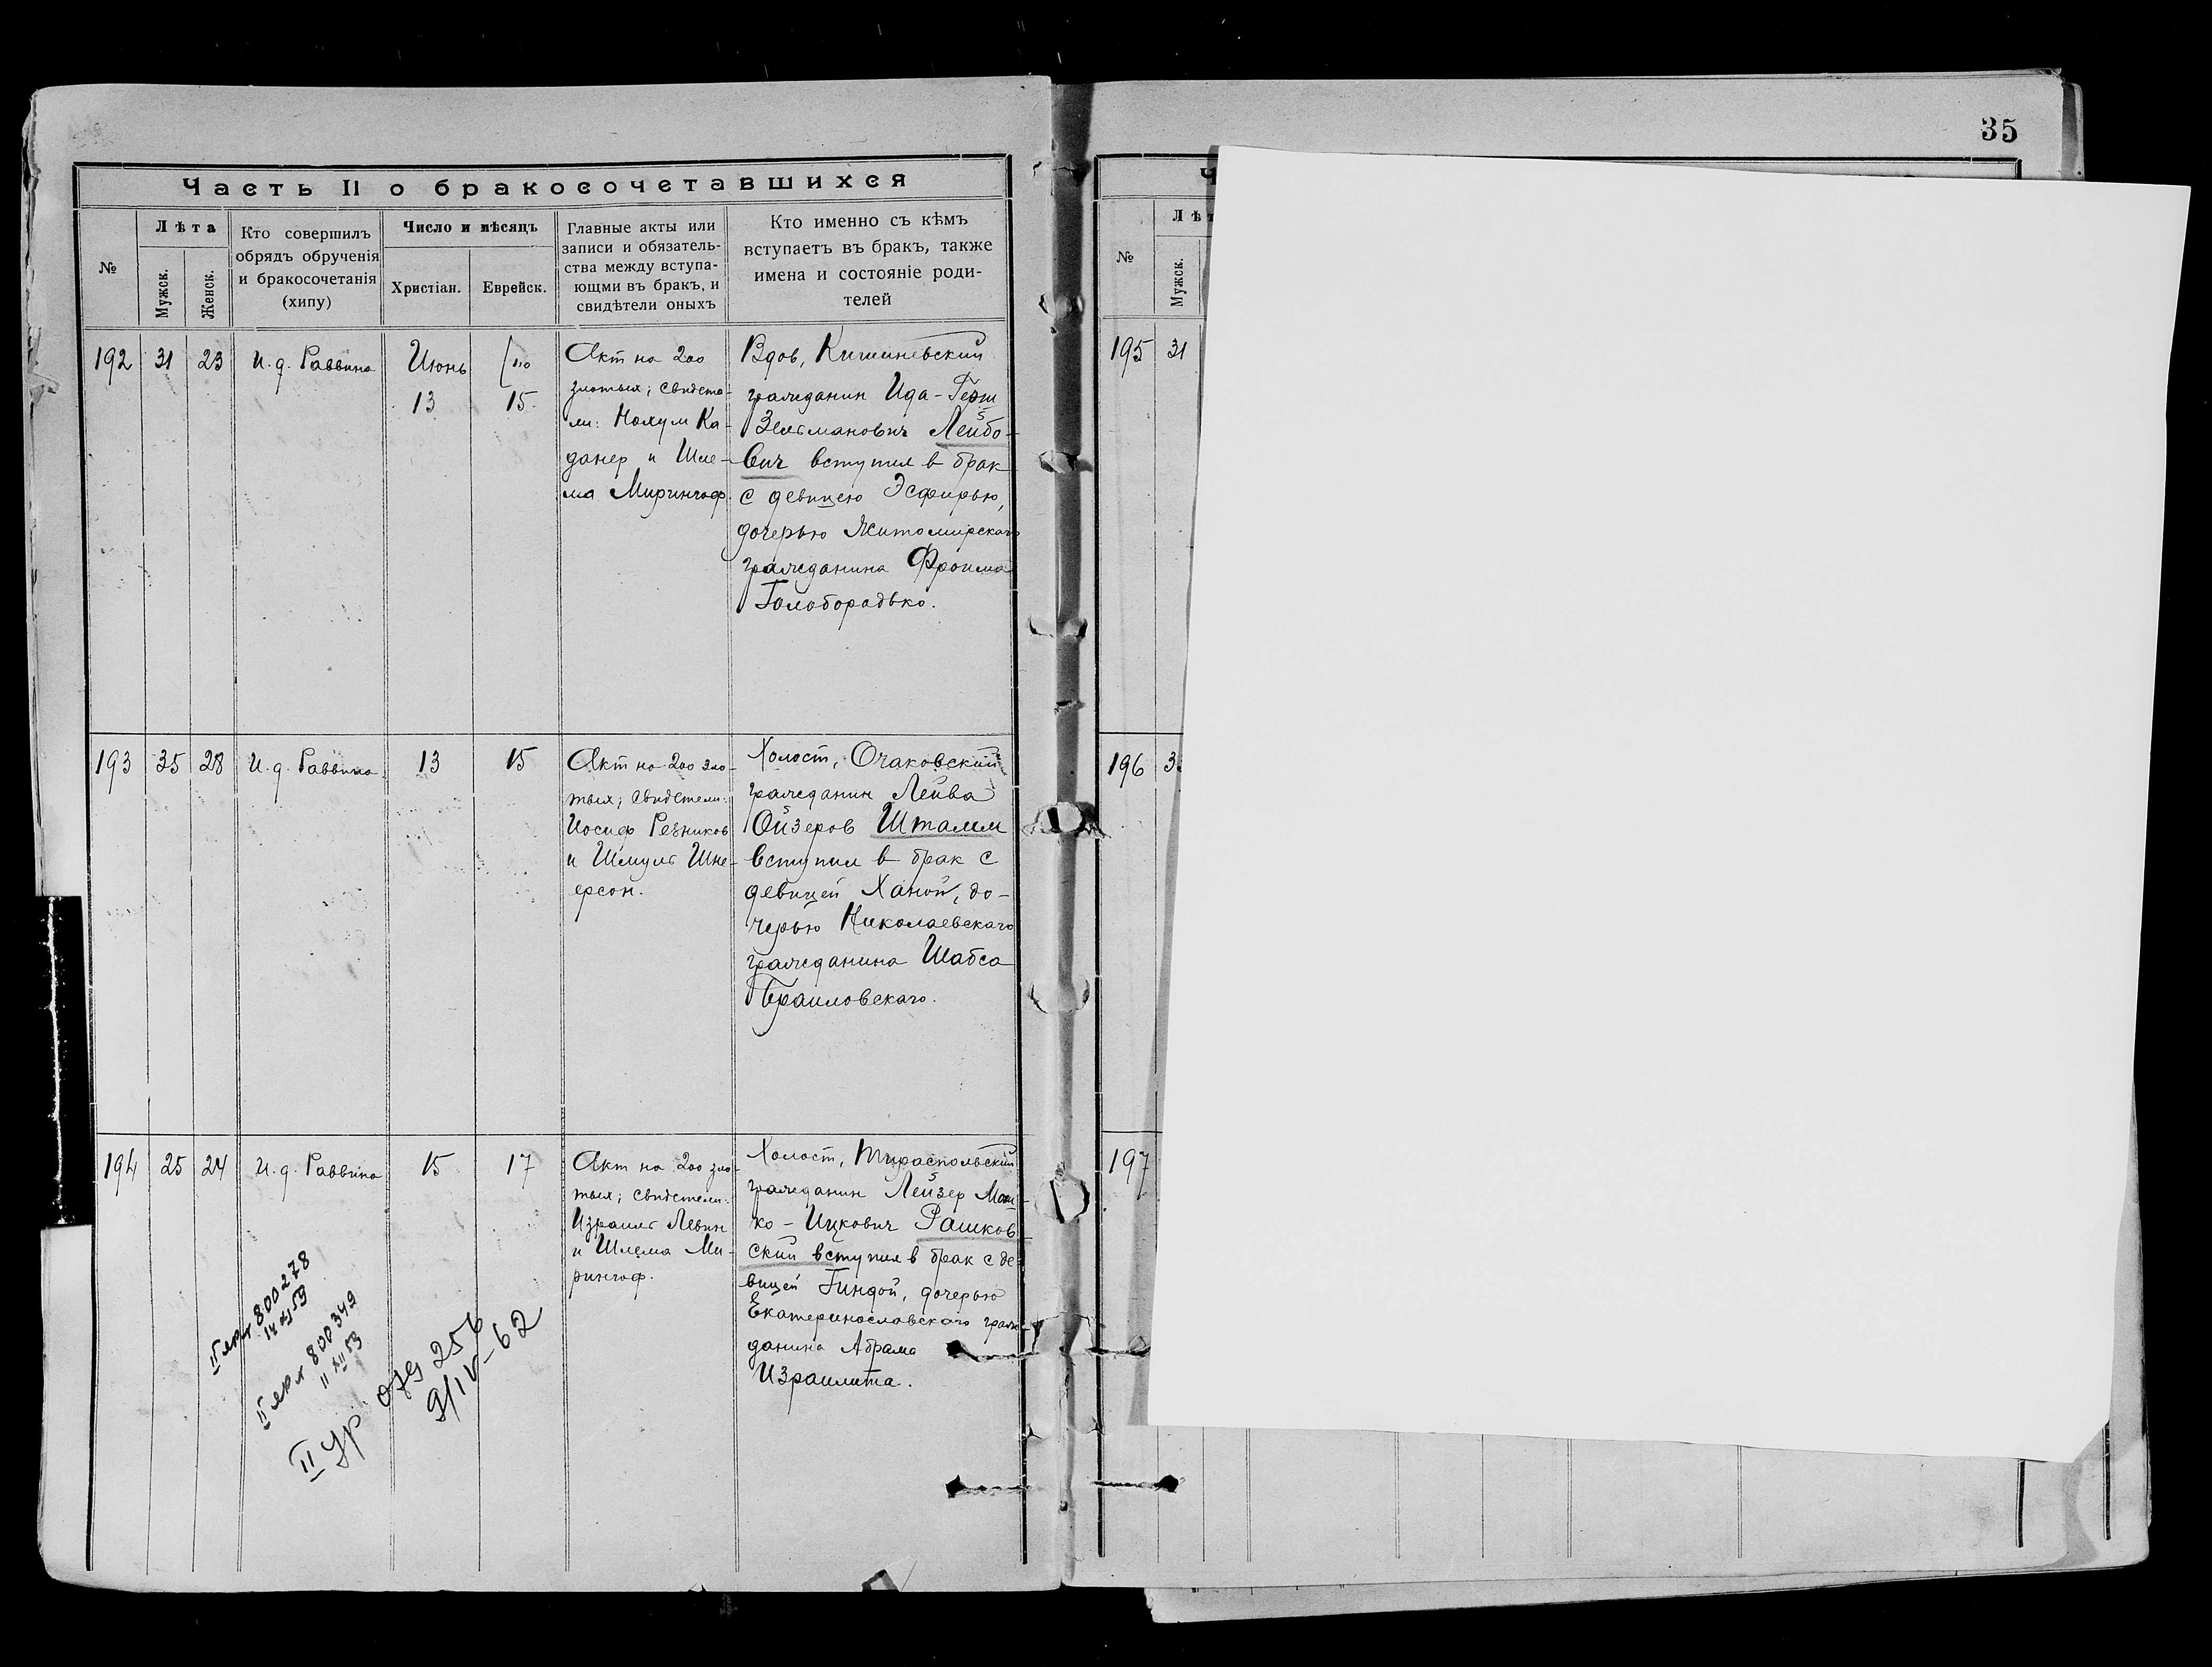 35
Часть II о бракосочетавшихся
№
Лѣта
Мужск.
Женск.
Кто совершилъ
обрядъ обрученія
и бракосочетанія
(хипу)
Число и мѣсяцъ
Христіан.
Еврейск.
Главные акты или
записи и обязатель-
ства между вступа-
ющми въ бракъ, и
свидѣтели оныхъ
Кто именно съ кѣмъ
вступаетъ въ бракъ, также
имена и состояніе роди-
телей
192
31
23
И. д. Раввина
Июнь
13
15
Акт на 200
злотых; свидете-
ли: Нахум Ка-
данер и Шле-
ма Мирингоф.
Вдов, Кишиневский
гражданин Ида-Герш
Зельманович Лейбо-
вич вступил в брак
с девицею Эсфирью,
дочерью Житомирскаго
гражданина Фроима
Голоборадько.
193
35
28
И. д. Раввина
13
15
Акт на 200 зло-
тых; свидетели:
Иосиф Резников
и Шмуль Шне-
ерсон.
Холост, Очаковский
гражданин Лейва
Ойзеров Шталим
вступил в брак с
девицей Ханой, до-
черью Николаевскаго
гражданина Шабса
Браиловскаго.
194
25
24
И. д. Раввина
15
17
Акт на 200 зло-
тых; свидетели:
Израиль Левин
и Шлема Ми-
рингоф.
Холост, Тираспольский
гражданин Лейзер Мош-
ко-Ицкович Рашков-
ский вступил в брак с де-
вицей Гиндой, дочерью
Екатеринославскаго граж-
данина Абрама
Израилита.
800278
800349
II
256
9/IV-62
№
Лѣт
Мужск.
195
31
196
197